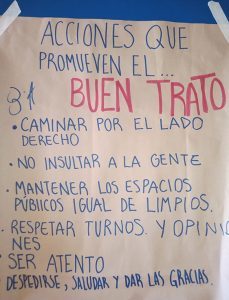 ACCIONES QUE
PROMUEVEN EL...
3°A BUEN TRATO
• CAMINAR POR EL LADO
DERECHO
• NO INSULTAR A LA GENTE
• MANTENER LOS ESPACIOS
PÚBLICOS IGUAL DE LIMPIOS.
• RESPETAR TURNOS. Y OPINIO
NES
• SER ATENTO
DESPEDIRSE, SALUDAR Y DAR LAS GRACIAS.